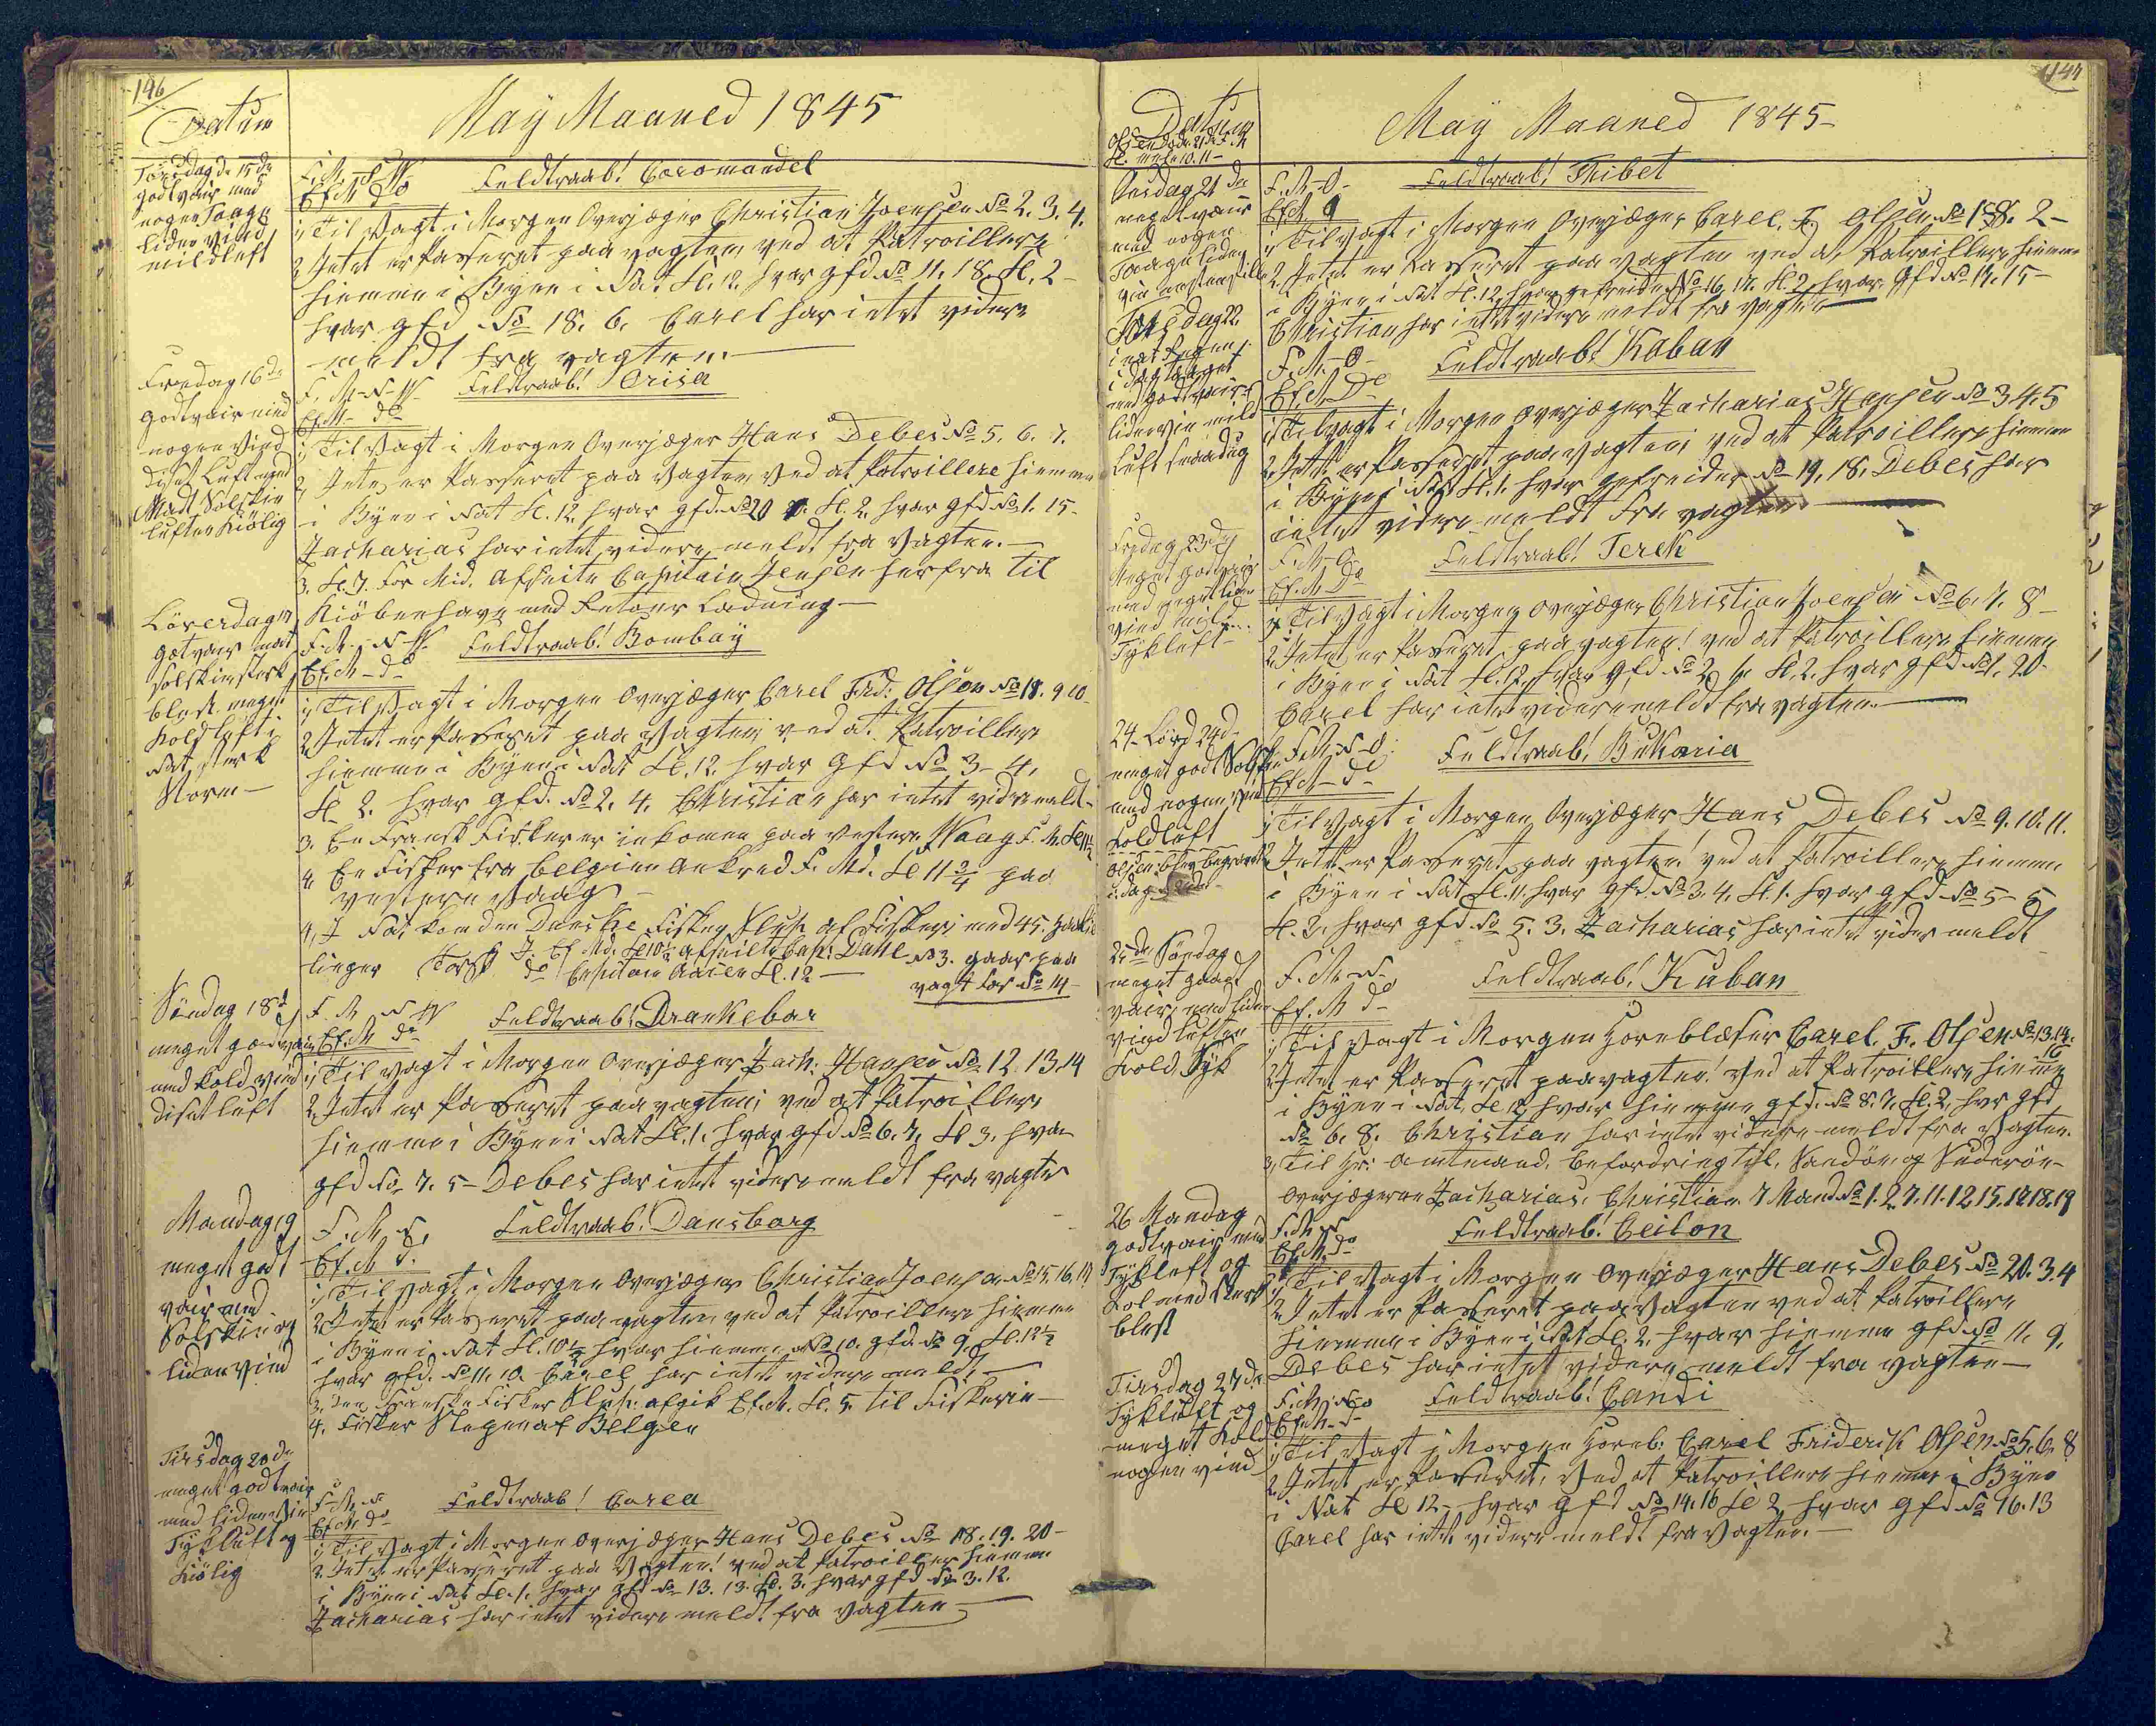 146
Datum
May Maaned 1845
Torsdag d. 15de
godt vair med
nogen Taage
liden vind
mild luft
F. M. N W.
Ef. M do
Feldtraab! Coromandel
1, Til Vagt i Morgen Overjæger Christian Joensen No 2. 3. 4.
2, Intet er Passeret paa vagten ved at Patroillere
hiemme i Byen i Nat Kl. 12. hvar gfd No 11. 18. Kl. 2 -
hvar gfd No 18. 6. Carel har intet videre
meldt fra vagten.
Fredag 16de
godt vair med
nogen Vind
diset Luft
Mad Solskin
luften kiölig
F. M. N-W-
Ef. M- do
Feldtraab! Orisa
1, Til Vagt i Morgen Overjæger Hans Debes No 5. 6. 7.
2, Intet er Passeret paa Vagten ved at Patroillere hiemme
i Byen i Nat Kl. 12 hvar gfd. No 20 Kl. 2. hvar gfd No 1. 15-
Zacharias har intet videre meldt fra Vagten.
3. Kl. 7. For Mid. afseilte Capitain Jensen herfra til
Kiöbenhavn med Retour Ladning -
Löverdag 17
solskin sterk
blest meget
kold luft i
Nat sterk
Storm -
F. M. N-W.
Ef. M- do
Feldtraab! Bombay
1, Til Vagt i Morgen Overjæger Carel Frid: Olsen No 18. 9 10
2, Intet er Passeret paa Vagten ved at Patroillere
hiemme i Byen i Nat Kl. 12 hvar gfd No 3- 4,
Kl 2. hvar gfd. No 2. 4. Christian har intet videre meldt-
3. En Fransk Fisker er inkomen paa vestere Waag F. M. Kl 11½
4 En Fisker fra Belgien ankred F. Md. Kl 11¾ paa
vestere Vaag -
4, I Nat kom den Danske Fisker Slup af Fiskeri med 45.
Torsk
Ef Md. Kl 10½ afseilte Cap: Dahl
do Capitain Kl. 12 -
No 3. gaar paa
vagt for No 14 -
Söndag 18d
meget godt vair
med kold vind
diset luft
F. M N W
Ef. M do
Feldtraab! Drankebar
1, Til vagt i Morgen Overjæger Zach: Hansen No 12. 13. 14
2. Intet er Passeret paa vagten ved at Patroillere
hiemme i Byen i Nat Kl. 1. hvar gfd No 6. 7. Kl 3. hvar
gfd No. 7. 5- Debes har intet videre meldt fra vagten
Mandag 19
meget godt
vair med
Solskin og
liden vind
F. M N.
Ef. M d.
Feldtraab! Dansborg
1, Til Vagt i Morgen Overjæger Christian Joensen No 15. 16. 17
2, Intet er Passeret paa vagten ved at Patroillere hiemme
i Byen i Nat Kl. 10½ hvar hiemme No 10. gfd. No 9. Kl. 12½
hvar gfd. No 11. 10. Carel har intet videre meldt -
3. Den Franske Fisker Slup. afgik Ef. M. Kl. 5. til Fiskerie -
4. Fisker Slupen af Belgen
Tirsdag 20de
meget godt vair
med liden Vin
Tyk luft og
kiölig
F. M. N
Ef. M. do
Feldtraab! Corea
1, Til Vagt i Morgen Overjæger Hans Debes No 18. 19. 20-
2. Intet er Passeret paa Vagten! ved at Patroillere hiemme
i Byen i Nat Kl. 1. hvar gfd No 13. 13. Kl. 3. hvar gfd No 3. 12.
Zacharias har intet videre meldt fra Vagten
147
Datum
May Maaned 1845-
Kl. 10. 11 -
Onsdag 21de
meget vair
med nogen
Taage liden
Vin
F. M - O -
Ef. M
Feldtraab! Thibet
1, Til vagt i Morgen Overjæger Carel. F. Olsen No 1. 2 -
2. Intet er Passeret paa vagten ved at Patroillere hiemme
i Byen i Nat Kl. 12 hvar gefreider No 16. 17. Kl. 2. hvar gfd No 14. 15-
Christian har intet videre meldt fra vagten
Torsdag 22.
med godt vair
liden vin mild
Luft
F. M. - O -
Ef. M do
Feldtraab! Kaban
1, Til vagt i Morgen Overjæger Zacharias Hansen No 3 4. 5
2, Intet er Passeret paa vagten ved at Patroillere hiemme
i Byen i Nat Kl. 1. hvar gefreider No 19. 18. Debes har
intet videre meldt fra vagten
Fredag 23de
Meget godt vair
med meget liden
vind mild
Tyk luft -
F. M - O -
Ef. M do
Feldtraab! Terek
1, Til vagt i Morgen Overjæger Christian Joensen No 6. 7. 8-
2, Intet er Passeret paa vagten! ved at Patroillere hiemme
i Byen i Nat Kl. 12. hvar gfd No 2 Kl. 2. hvar gfd No 1. 20-
Carel har intet videre meldt fra vagten.
24- Lörd 24d-
meget godt Solskin
med nogen vind
kold luft
Olsen blev begravet
i dag
F. M - N-O.
Ef. M - do
Feldtraab! Bukaria
1, Til vagt i Morgen Overjæger Hans Debes No 9. 10. 11.
2, Intet er Passeret paa vagten! ved at Patroillere hiemme
i Byen i Nat Kl. 11. hvar gfd. No 3. 4. Kl. 1. hvar gfd No 5 - 5
Kl. 3. hvar gfd. No 5. 3. Zacharias har intet videre meldt
25de Söndag
meget godt
vair, med liden
vind luften
kold Tyk
F. M - N.
Ef. M do
Feldtraab! Kuban
1, Til vagt i Morgen Hornblæser Carel. F. Olsen No 13. 14.
16
2, Intet er Passeret paa vagten! Ved at Patroillere hiemme
i Byen i Nat, Kl 12 hvar hiemme gfd. No 8. 7. Kl. 2. hvar gfd
No 6. 8. Christian har intet videre meldt fra Vagten.
3, Til Hr: Amtmand. befordring til Sandöe og Suderöe -
Overjægerne Zacharias, Christian 7 Mand No 1. 2. 7. 11. 12 15. 17 18. 19
26 Mandag
godt vair med
Tyk luft og
kol med sterk
blest
F. M N
Ef. M. do
Feldtraab! Ceilon
1, Til Vagt i Morgen Overjæger Hans Debes No 20. 3. 4
2. Intet er Passeret paa Vagten ved at Patroillere
hiemme i Byen i Nat Kl. 2. hvar hiemme gfd No 11. 9.
Debes har intet videre meldt fra vagten -
Tirsdag 27de
Tyk luft og
meget kold
nogen vind
F. M. N o
Ef. M - do
Feldtraab! Candi
1, Til Vagt i Morgen Hornb: Carel Friderich Olsen No 5. 6. 8
2. Intet er Passeret, Ved at Patroillere hiemme i Byen
i Nat Kl 12 - hvar gfd No 14. 16 Kl 2 hvar gfd No 16. 13
Carel har intet videre meldt fra Vagten. -